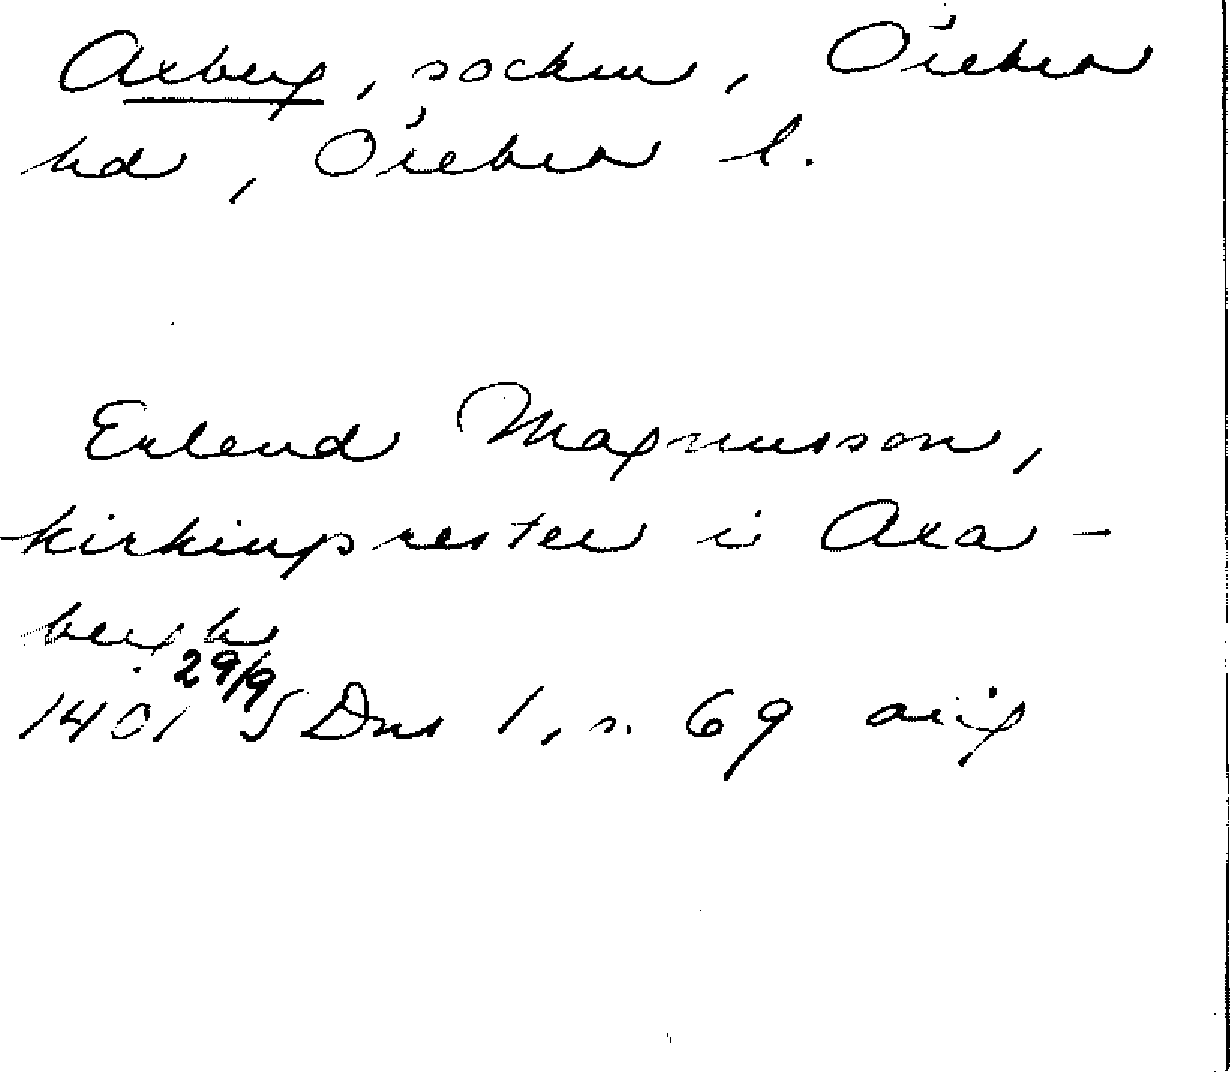 Axberg, socken, Örebro
hd, Örebro l.
Erlend Magnusson,
kirkiuprester i Axa-
bergh
1401 29/9 SDns 1, s. 69 orig